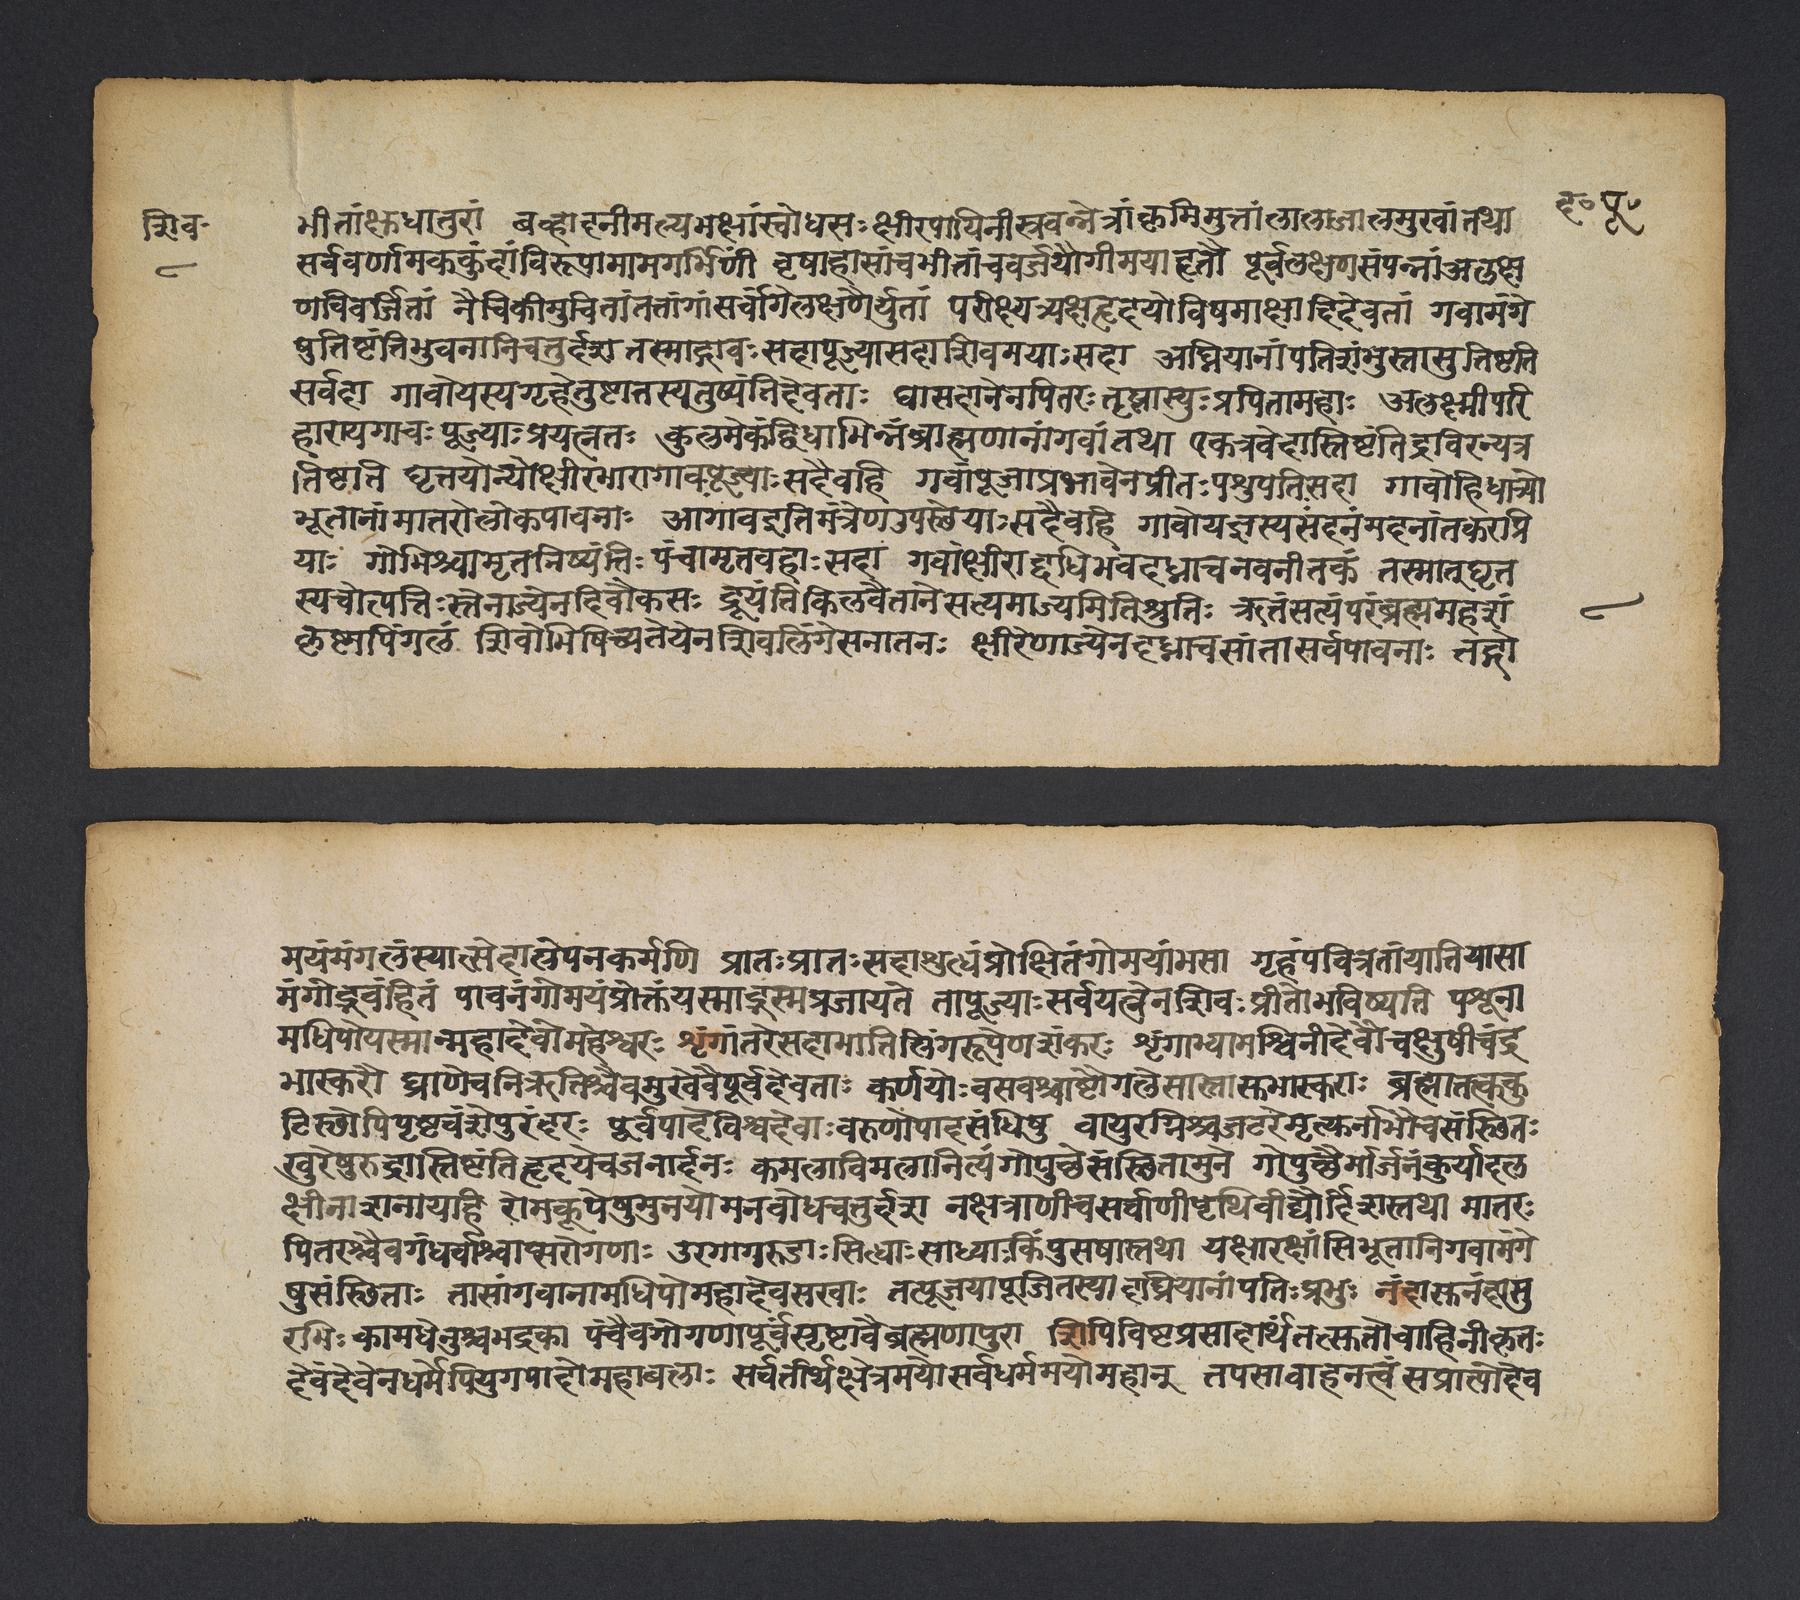 शिव॰
८
ह॰ पू॰
भीतांक्षुधातुरां बव्होदनीमल्पभक्षांस्वोधसः क्षीरपायिनीस्त्रवन्नेत्रांकृमिमुत्तांलालाजालमुखांतथा
सर्ववर्णामककुदांविरूपामामगर्भिणीं वृषाहासांचभीतांचवर्जयेगीमयादृतौ पूर्वलक्षणसंपन्नांअलक्ष
णविवर्जितां नैचिकीमुचितांतत्तांगांसर्वांगेलक्षणैर्युतां परीक्ष्यत्र्यक्षहृदयोविषमाक्षादिदेवतां गवामंगे
षुतिष्टंतिभुवनानिचतुर्दश तस्माद्गावःसदापूज्यासदाशिवमयाःसदा अघ्नियानांपतिशंभुस्तासुतिष्टति
सर्वदा गावोयस्यगृहेतुष्टातस्यतुष्यंतिदेवताः घासदानेनपितरःतृप्तास्युःप्रपितामहाः अलक्ष्मीपरि
हारायगावःपूज्याःप्रयत्नतः कुलमेकंद्विधाभिन्नंब्राह्मणानांगवांतथा एकत्रवेदास्तिष्टंतिहविरन्यत्र
तिष्टति घृतयोन्योक्षीरभारागावःपूज्याःसदैवहि गवांपूजाप्रभावेनप्रीतःपशुपतिसदा गावोहिधात्र्यो
भूतानांमातरोलोकपावनाः आगावइतिमंत्रेणउपस्छेयाःसदैवहि गावोयज्ञस्यसंदनंमदनांतकराप्रि
याः गोभिश्चामृतनिष्यंत्तिःपंचामृतवहाःसदा गवांक्षीराद्दधिभवेदध्नाचनवनीतकं तस्मात्घृत
स्यचोत्पत्तिःस्तेनाज्येनदिवौकसः हूयंतेकिलवैतानेसत्यमाज्यमितिश्रुतिः ऋतंसत्यंपरंब्रह्ममहशं
८
कृष्णपिंगलं शिवोभिषिच्यतेयेनशिवलिंगेसनातनः क्षीरेणाज्येनदध्नाचसांतासर्वपावनाः तद्गो
मयंमंगलंस्यात्सेहालेपनकर्मणि प्रातःप्रातःसदाशुध्यंप्रोक्षितंगोमयांभसा गृहंपवित्रतांयातियासा
मंगोद्भवंहितं पावनंगोमयंप्रोक्तंयस्माद्भस्मप्रजायते तापूज्याःसर्वयत्नेनशिवःप्रीतोभविष्यति पशूना
मधिपोयस्मान्महादेवोमहेश्वरः शृंगांतरेसदाभातिलिंगरूपेणशंकरः शृंगाभ्यामश्विनीदेवौचक्षुषीचंद्र
भास्करौ घ्राणेचनिऋतिश्चैवमुखेवैपूर्वदेवताः कर्णयोःवसवश्चाष्टौगलेसास्त्रास्तभास्कराः ब्रह्मातत्ककु
दिस्छोपिपृष्टवंशेपुरंदरः पूर्वपादेविश्वदेवाःवरुणोपादसंधिषु वायुरग्निश्चजटरेमृत्कर्नाभौचसंस्छितः
खुरेषुरुद्रास्तिष्टंतिहृदयेचजनार्दनः कमलाविमलानित्यंगोपुच्छेसंस्छितामुने गोपुच्छैर्मार्जनंकुर्यादल
क्षीनाशनायहि रोमकूपेषुमुनयोमनवोथचतुर्दश नक्षत्राणीचसर्वाणीपृथिवीद्यौर्दिशस्तथा मातरः
पितरश्चैवगंधर्वाश्चाप्सरोगणाः उरगागरुडाःसिध्दाःसाध्याःकिंपुरुषास्तथा यक्षारक्षांसिभूतानिगवामंगे
षुसंस्छिताः तासांगवानामधिपोमहादेवसखाः तत्पूजयापूजितस्यादघ्नियानांपतिःप्रभुः नंदास्तनंदासु
रभिःकामधेनुश्चभद्रका पंचैवगोगणापूर्वंसृष्टावैब्रह्मणापुरा शिपिविष्टप्रसादार्थंतत्कृतोवाहिनीकृतः
देवंदेवेनधर्मेपियुगपादोमहाबलाः सर्वतीर्थक्षेत्रमयोसर्वधर्ममयोमहान् तपसावाहनत्त्वंसप्राप्तोदेव